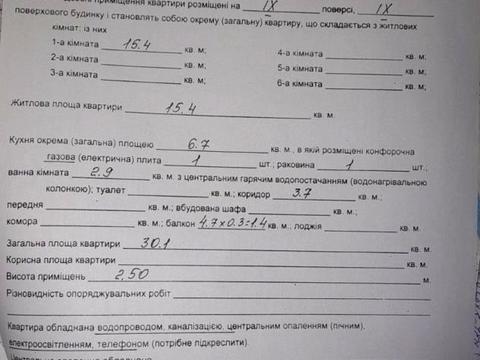 приміщення квартири розміщені на IX поверсі, IX
поверхового будинку і становлять собою окрему (загальну) квартиру, що складається з житлових
кімнат: із них
1-а кімната 15.4 кв. м; 4-а кімната кв. м;
2-а кімната кв. м; 5-а кімната кв. м;
3-а кімната кв. м; 6-а кімната кв. м;
Житлова площа квартири 15.4 кв. м.
Кухня окрема (загальна) площею 6.7 кв. м., в якій розміщені конфорочна
газова (електрична) плита 1 шт.; раковина 1 шт.;
ванна кімната 2.9 кв. м. з центральним гарячим водопостачанням (водонагрівальною
колонкою); туалет кв. м.; коридор 3.7 кв. м.
передня кв. м.; вбудована шафа кв. м.
комора кв. м.; балкон 4.7x0.3=1.4 кв. м., лоджія кв. м.
Загальна площа квартири 30.1 кв. м.
Корисна площа квартири кв. м.
Висота приміщень 2,50 м.
Різновидність опоряджувальних робіт
Квартира обладнана водопроводом, каналізацією, центральним опаленням (пічним),
електроосвітленням, телефоном (потрібне підкреслити).